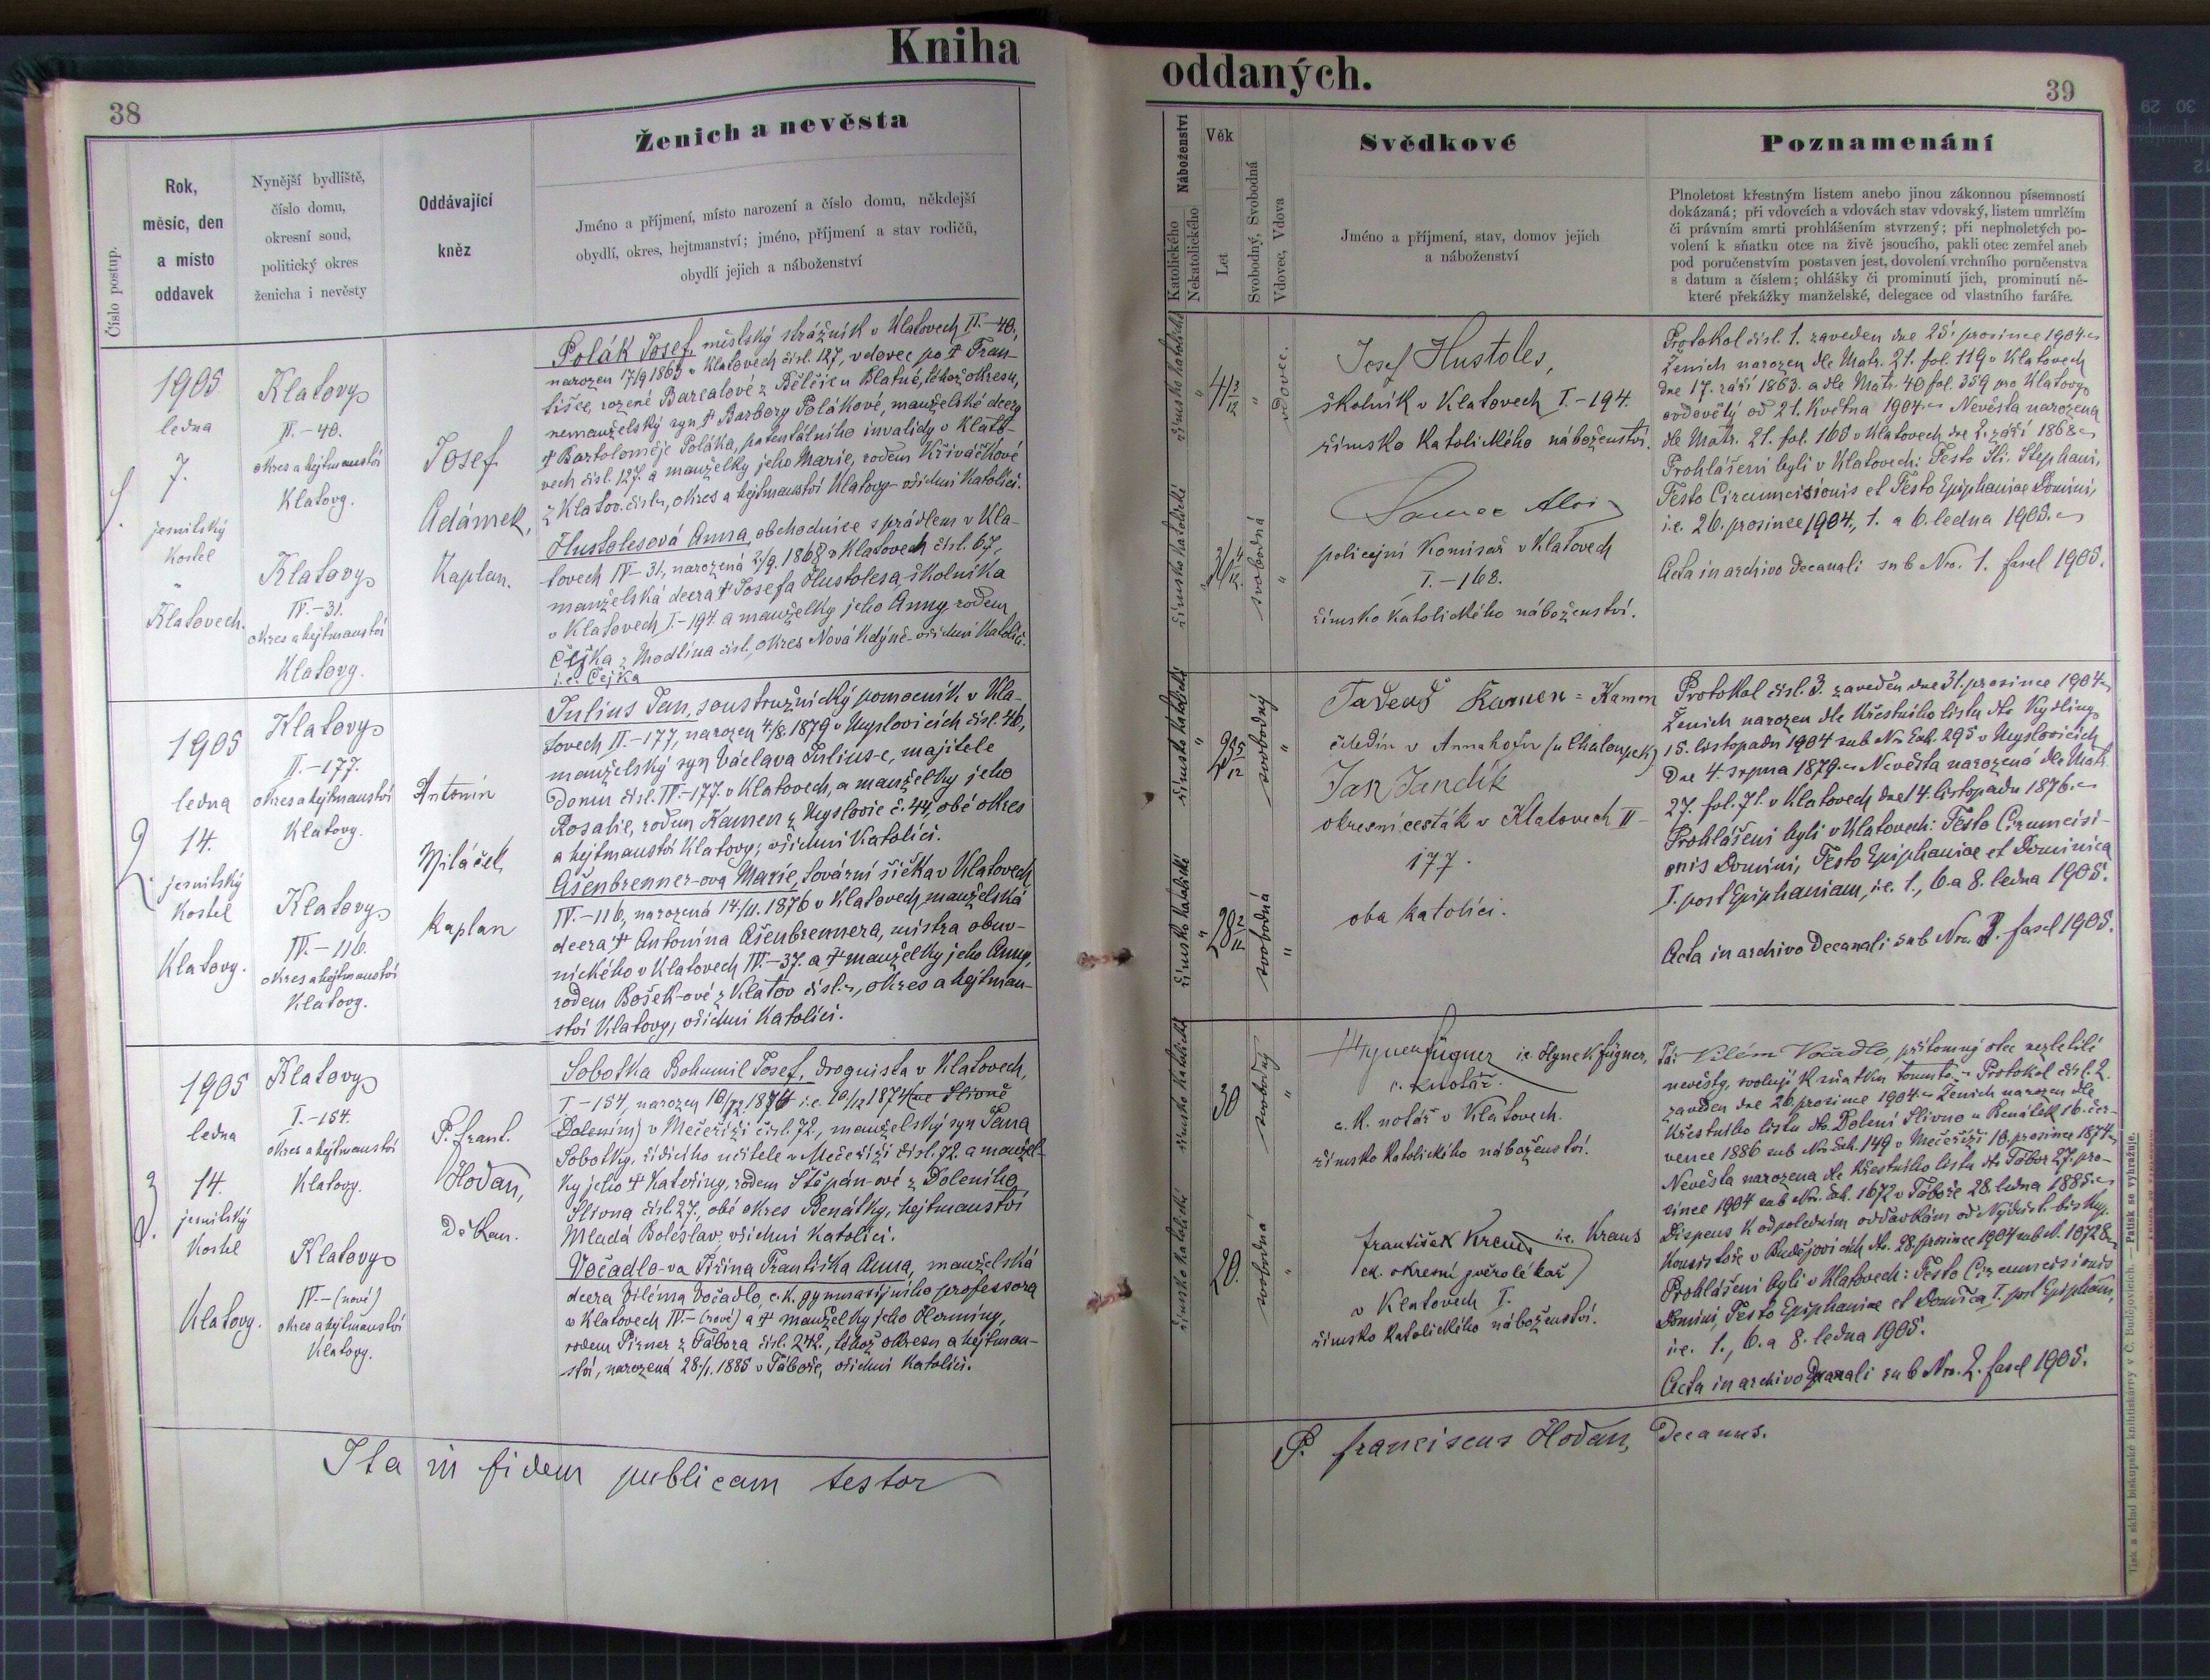 Kniha
oddaných.
38
39
Číslo postup.
Rok,
měsíc, den
a místo
oddavek
Nynější bydliště,
číslo domu,
okresní soud,
politický okres
ženicha i nevěsty
Oddávající
kněz
Ženich a nevěsta
Jméno a příjmení, místo narození a číslo domu, někdejší
obydlí, okres, hejtmanství; jméno, příjmení a stav rodičů,
obydlí jejich a náboženství
Náboženství
Katolického
Nekatolického
Věk
Let
Svobodný, Svobodná
Vdovec, Vdova
Svědkové
Jméno a příjmení, stav, domov jejich
a náboženství
Poznamenání
Plnoletost křestným listem anebo jinou zákonnou písemností
dokázaná; při vdovcích a vdovách stav vdovský, listem umrlčím
či právním smrti prohlášením stvrzený; při neplnoletých po-
volení k sňatku otce na živě jsoucího, pakli otec zemřel aneb
pod poručenstvím postaven jest, dovolení vrchního poručenstva
s datum a číslem; ohlášky či prominutí jich, prominutí ně-
které překážky manželské, delegace od vlastního faráře.
1.
1905
ledna
7.
jesuitský
kostel
v
Klatovech.
Klatovy
II.-40.
okres a hejtmanství
Klatovy.
Klatovy
IV.-31.
okres a hejtmanství
Klatovy.
Josef
Adámek,
Kaplan.
Polák Josef, městský strážník v Klatovech II.-40,
narozen 17/9 1863 v Klatovech čísl. 127, vdovec po † Fran-
tišce, rozené Barcalové z Bělčic u Blatné, téhož okresu,
nemanželský syn † Barbory Polákové, manželské dcery
† Bartoloměje Poláka, patentálního invalidy v Klato-
vech čísl. 127. a manželky jeho Marie, rodem Křiváčkové
z Klatov čísl., okres a hejtmanství Klatovy - všichni katolíci.
Hustolesová Anna, obchodnice s prádlem v Kla-
tovech IV-31, narozená 2/9. 1868 v Klatovech čísl. 67,
manželská dcera † Josefa Hustolesa, školníka
v Klatovech I.-194. a manželky jeho Anny rodem
Čejka z Modlína čísl., okres Nová Kdyně - všichni katolíci.
i.e. Čejka
římsko katolické
41 3/12
vdovec.
římsko katolické
36 4/12
svobodná
"
Josef Hustoles,
školník v Klatovech I.-194.
římsko katolického náboženství.
Samec Alois
policejní komisař v Klatovech
I.-168.
římsko katolického náboženství.
Protokol čísl. 1. zaveden dne 25. prosince 1904.
Ženich narozen dle Matr. 21. fol. 119 v Klatovech
dne 17. září 1863. a dle Matr. 40 fol. 359 pro Klatovy
ovdovělý od 21. května 1904. Nevěsta narozená
dle Matr. 21. fol. 165 v Klatovech dne 2. září 1868.
Prohlášeni byli v Klatovech: Festo Sti. Stephani,
Festo Circumcisionis et Festo Epiphaniae Domini,
i.e. 26. prosince 1904., 1. a 6. ledna 1905.
Acta in archivo decanali sub Nro. 1. fascl 1905.
2.
1905
ledna
14.
jesuitský
kostel
Klatovy.
Klatovy
II.-177.
okres a hejtmanství
Klatovy.
Klatovy
IV.-116.
okres a hejtmanství
Klatovy.
Antonín
Miláček,
Kaplan
Julius Jan, soustružnický pomocník v Kla-
tovech II.-177, narozen 4/8. 1879 v Myslovicích čísl. 46,
manželský syn Václava Julius-e, majitele
domu čísl. II.-177. v Klatovech, a manželky jeho
Rosalie, rodem Kamen z Myslovic č. 44, obé okres
a hejtmanství Klatovy; všichni katolíci.
Ašenbrenner-ova Marie, tovární šička v Klatovech
IV.-116, narozená 14/11. 1876 v Klatovech, manželská
dcera † Antonína Ašenbrennera, mistra obuv-
nického v Klatovech IV.-37. a † manželky jeho Anny,
rodem Bošek-ové z Klatov čísl., okres a hejtman-
ství Klatovy, všichni katolíci.
římsko katolické
25 5/12
svobodný
"
římsko katolické
28 2/12
svobodná
"
Tadeus Kamen = Kamen
čeledín v Annahofu (u Chaloupek)
Jan Jandík
okresní cesták v Klatovech II-
177.
oba katolíci.
Protokol čísl. 3. zaveden dne 31. prosince 1904.
Ženich narozen dle křestního listu dto Kydliny
15. listopadu 1904 sub Nr. Exh. 295 v Myslovicích
dne 4. srpna 1879. Nevěsta narozená dle Matr.
27. fol. 71. v Klatovech dne 14. listopadu 1876.
Prohlášeni byli v Klatovech: Festo Circumcisi-
onis Domini, Festo Epiphaniae et Dominica
I. post Epiphaniam, i.e. 1., 6. a 8. ledna 1905.
Acta in archivo Decanali sub Nro. 3. fascl 1905.
3.
1905
ledna
14.
jesuitský
kostel
Klatovy.
Klatovy
I.-154.
okres a hejtmanství
Klatovy.
Klatovy
IV.-(nové)
okres a hejtmanství
Klatovy.
P. Frant.
Hodan,
Děkan.
Sobotka Bohumil Josef, droguista v Klatovech,
I.-154, narozen 10/12 1874 i.e. 10/12 1874 (ve Slivně
Dolením) v Mečeříži čísl. 72., manželský syn Jana
Sobotky, řídícího učitele v Mečeříži čísl. 72. a manžel-
ky jeho † Kateřiny, rodem Štěpán-ové z Doleního
Slivna čísl. 27., obé okres Benátky, hejtmanství
Mladá Boleslav, všichni katolíci.
Vočadlo-va Jiřina Františka Anna, manželská
dcera Viléma Vočadlo, c.k. gymnasijního professora
v Klatovech IV.-(nové) a † manželky jeho Herminy,
rodem Pirner z Tábora čísl. 242., téhož okresu a hejtman-
ství, narozená 28./1. 1885 v Táboře, všichni katolíci.
římsko katolické
30
svobodný
"
římsko katolické
20.
svobodná
"
Hynek Fügner i.e. Hynek Fügner,
c. k. notář.
c. k. notář v Klatovech.
římsko katolického náboženství.
František Kraus i.e. Kraus
ck. okresní zvěrolékař
v Klatovech I.
římsko katolického náboženství.
Já: Vilém Vočadlo, přítomný otec nezletilé
nevěsty, svoluji k sňatku tomuto. - Protokol čísl. 2.
zaveden dne 26. prosince 1904. Ženich narozen dle
křestního listu dto. Dolení Slivno u Benátek 16. čer-
vence 1886 sub Nr. Exh. 149 v Mečeříži 10. prosince 1874.
Nevěsta narozena dle křestního listu dto Tábor 27. pro-
since 1904 sub Nr. Exh. 1672 v Táboře 28. ledna 1885.
Dispens k odpoledním oddavkám od Nejdůst. biskup.
Konsistoře v Budějovicích dto. 28. prosince 1904 sub N. 10728
Prohlášeni byli v Klatovech: Festo Circumcisionis
Domini, Festo Epiphaniae et Domica I. post Epipham,
i.e. 1., 6. a 8. ledna 1905.
Acta in archivo Decanali sub Nro. 2. fascl 1905.
Ita in fidem publicam testor
P. Franciscus Hodan, Decanus.
Tisk a sklad biskupské knihtiskárny v Č. Budějovicích. — Patisk se vyhražuje.